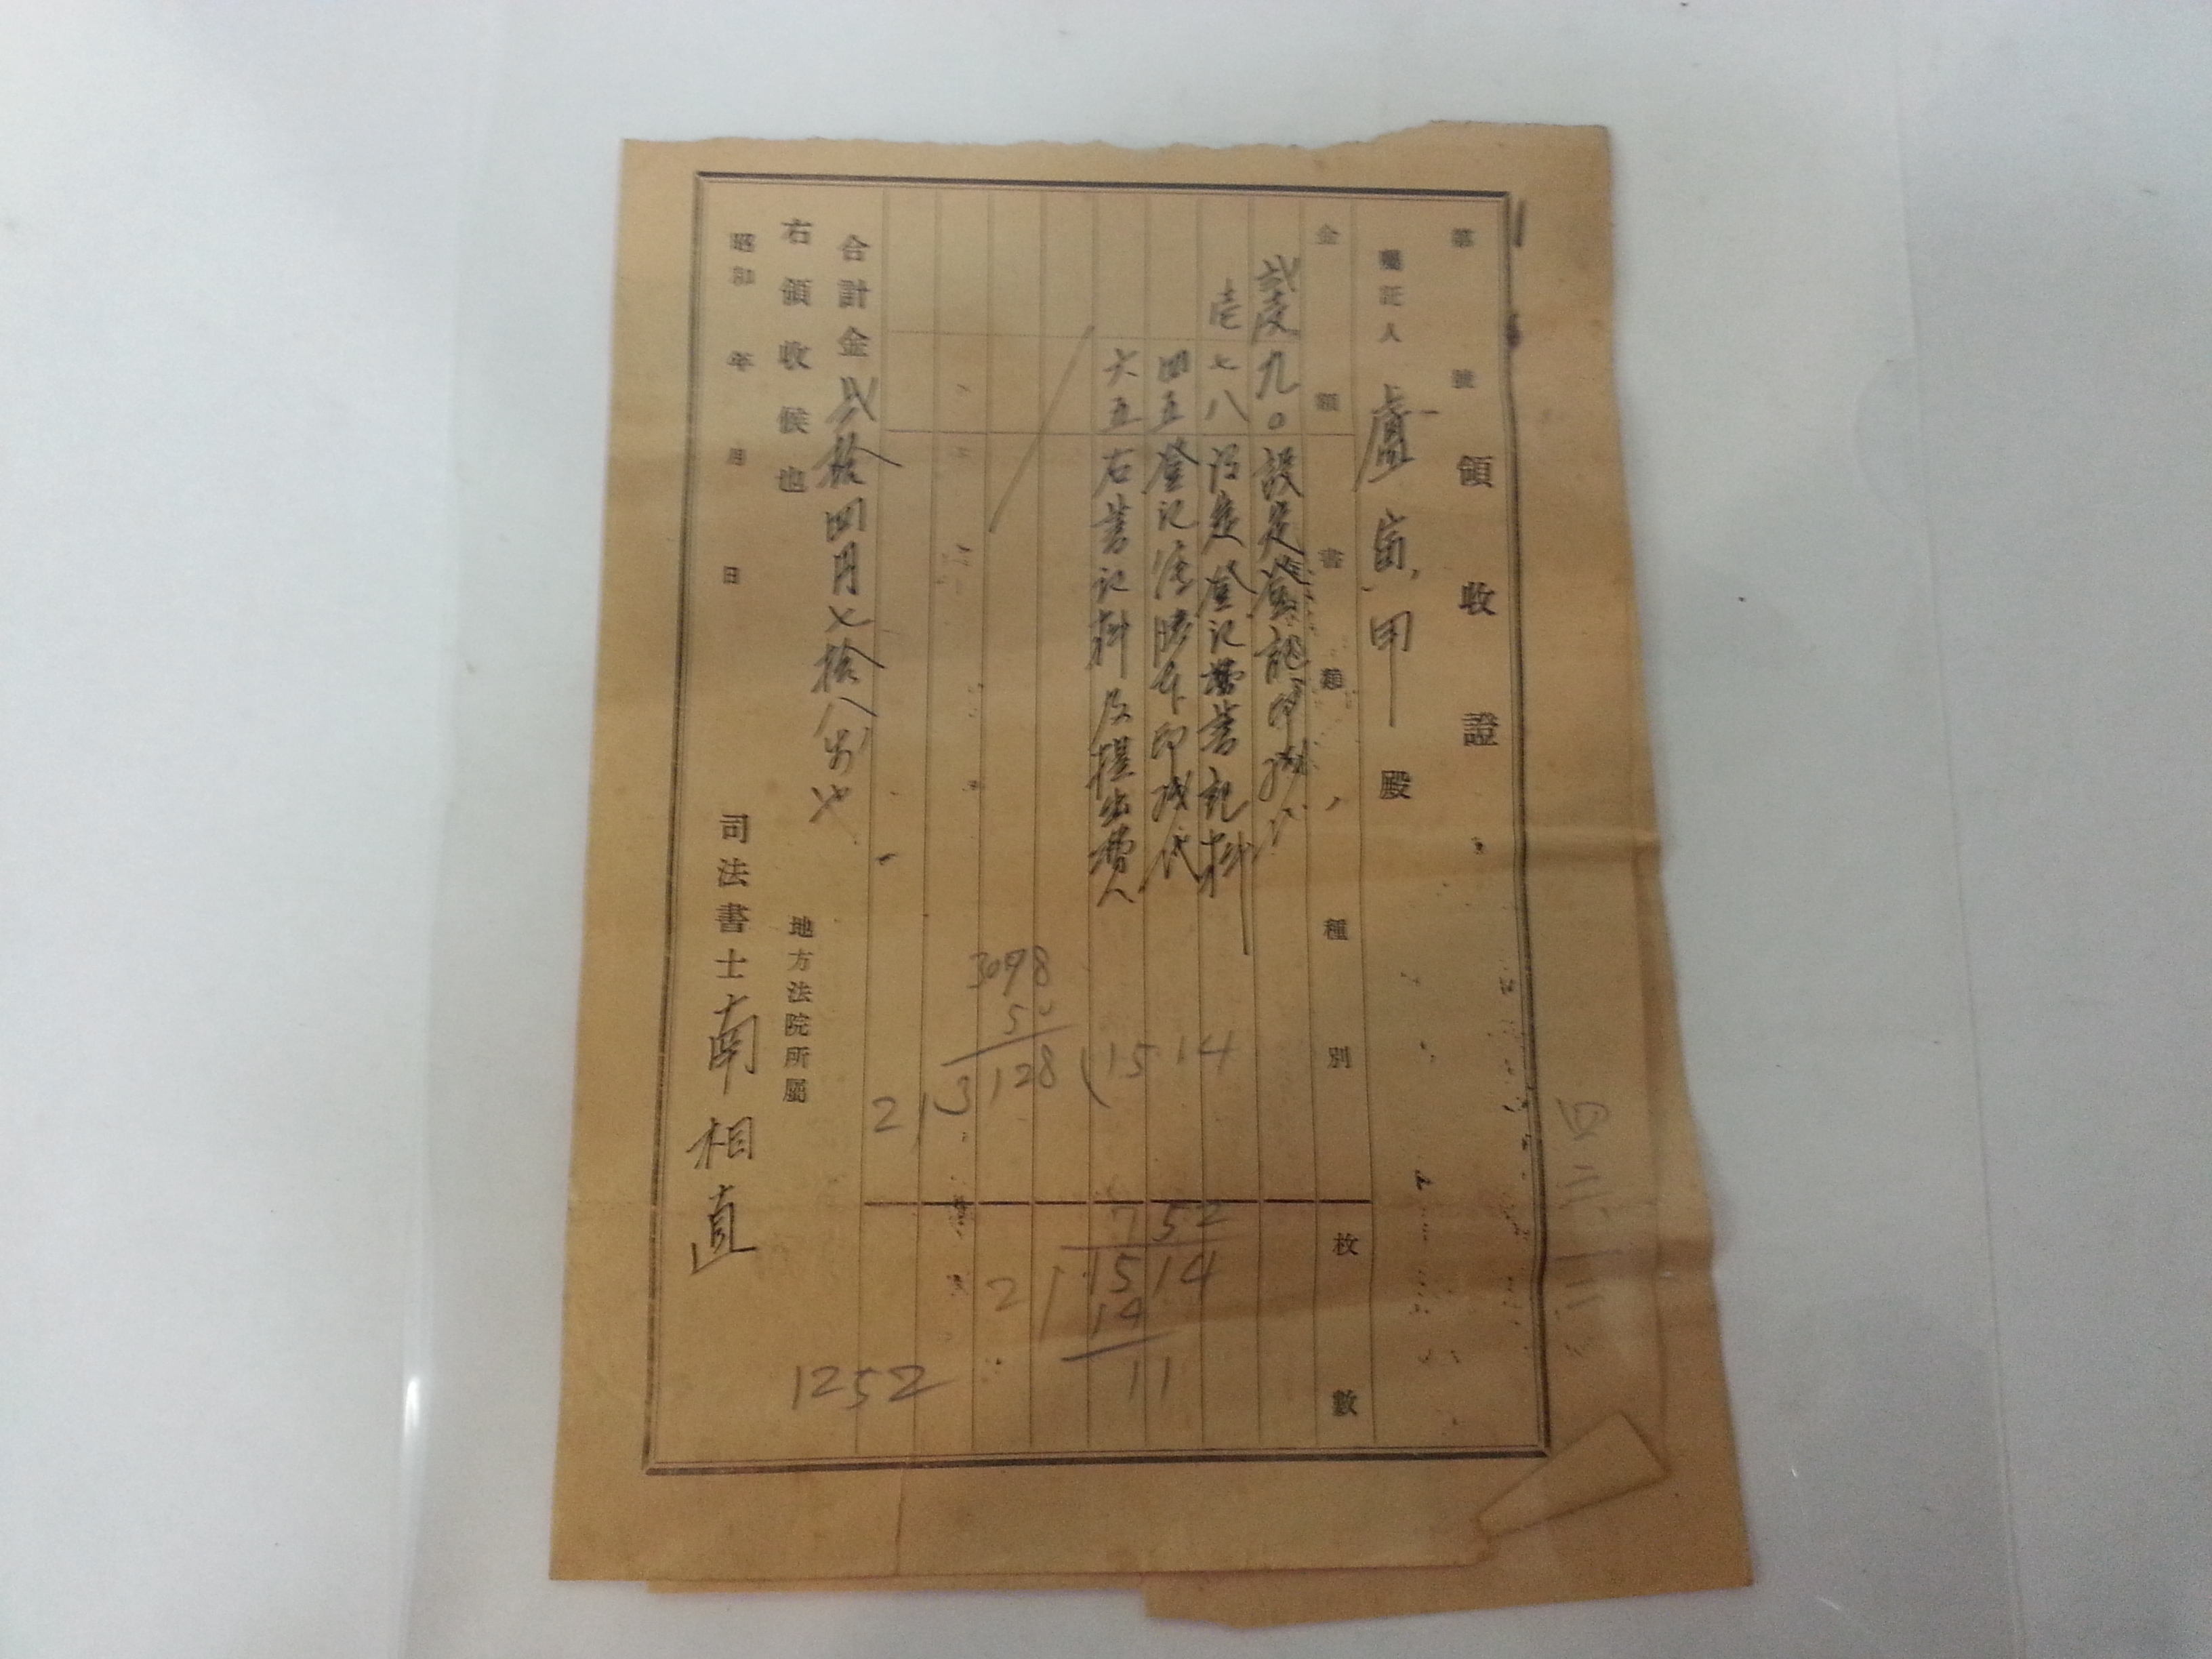 第 號 領收證
囑託人 盧寅甲 殿
金額 書類ノ種別 枚數
九〇 設定登記印紙代
壱 七八 設定登記書記料
四五 登記済謄本印紙代
六五 右書記料及提出費
合計金弐拾四円七拾八銭也
右領收候也
地方法院所屬
昭和 年 月 日 司法書士 南相直
3098
3128
1514
2
752
2
1514
14
11
1252